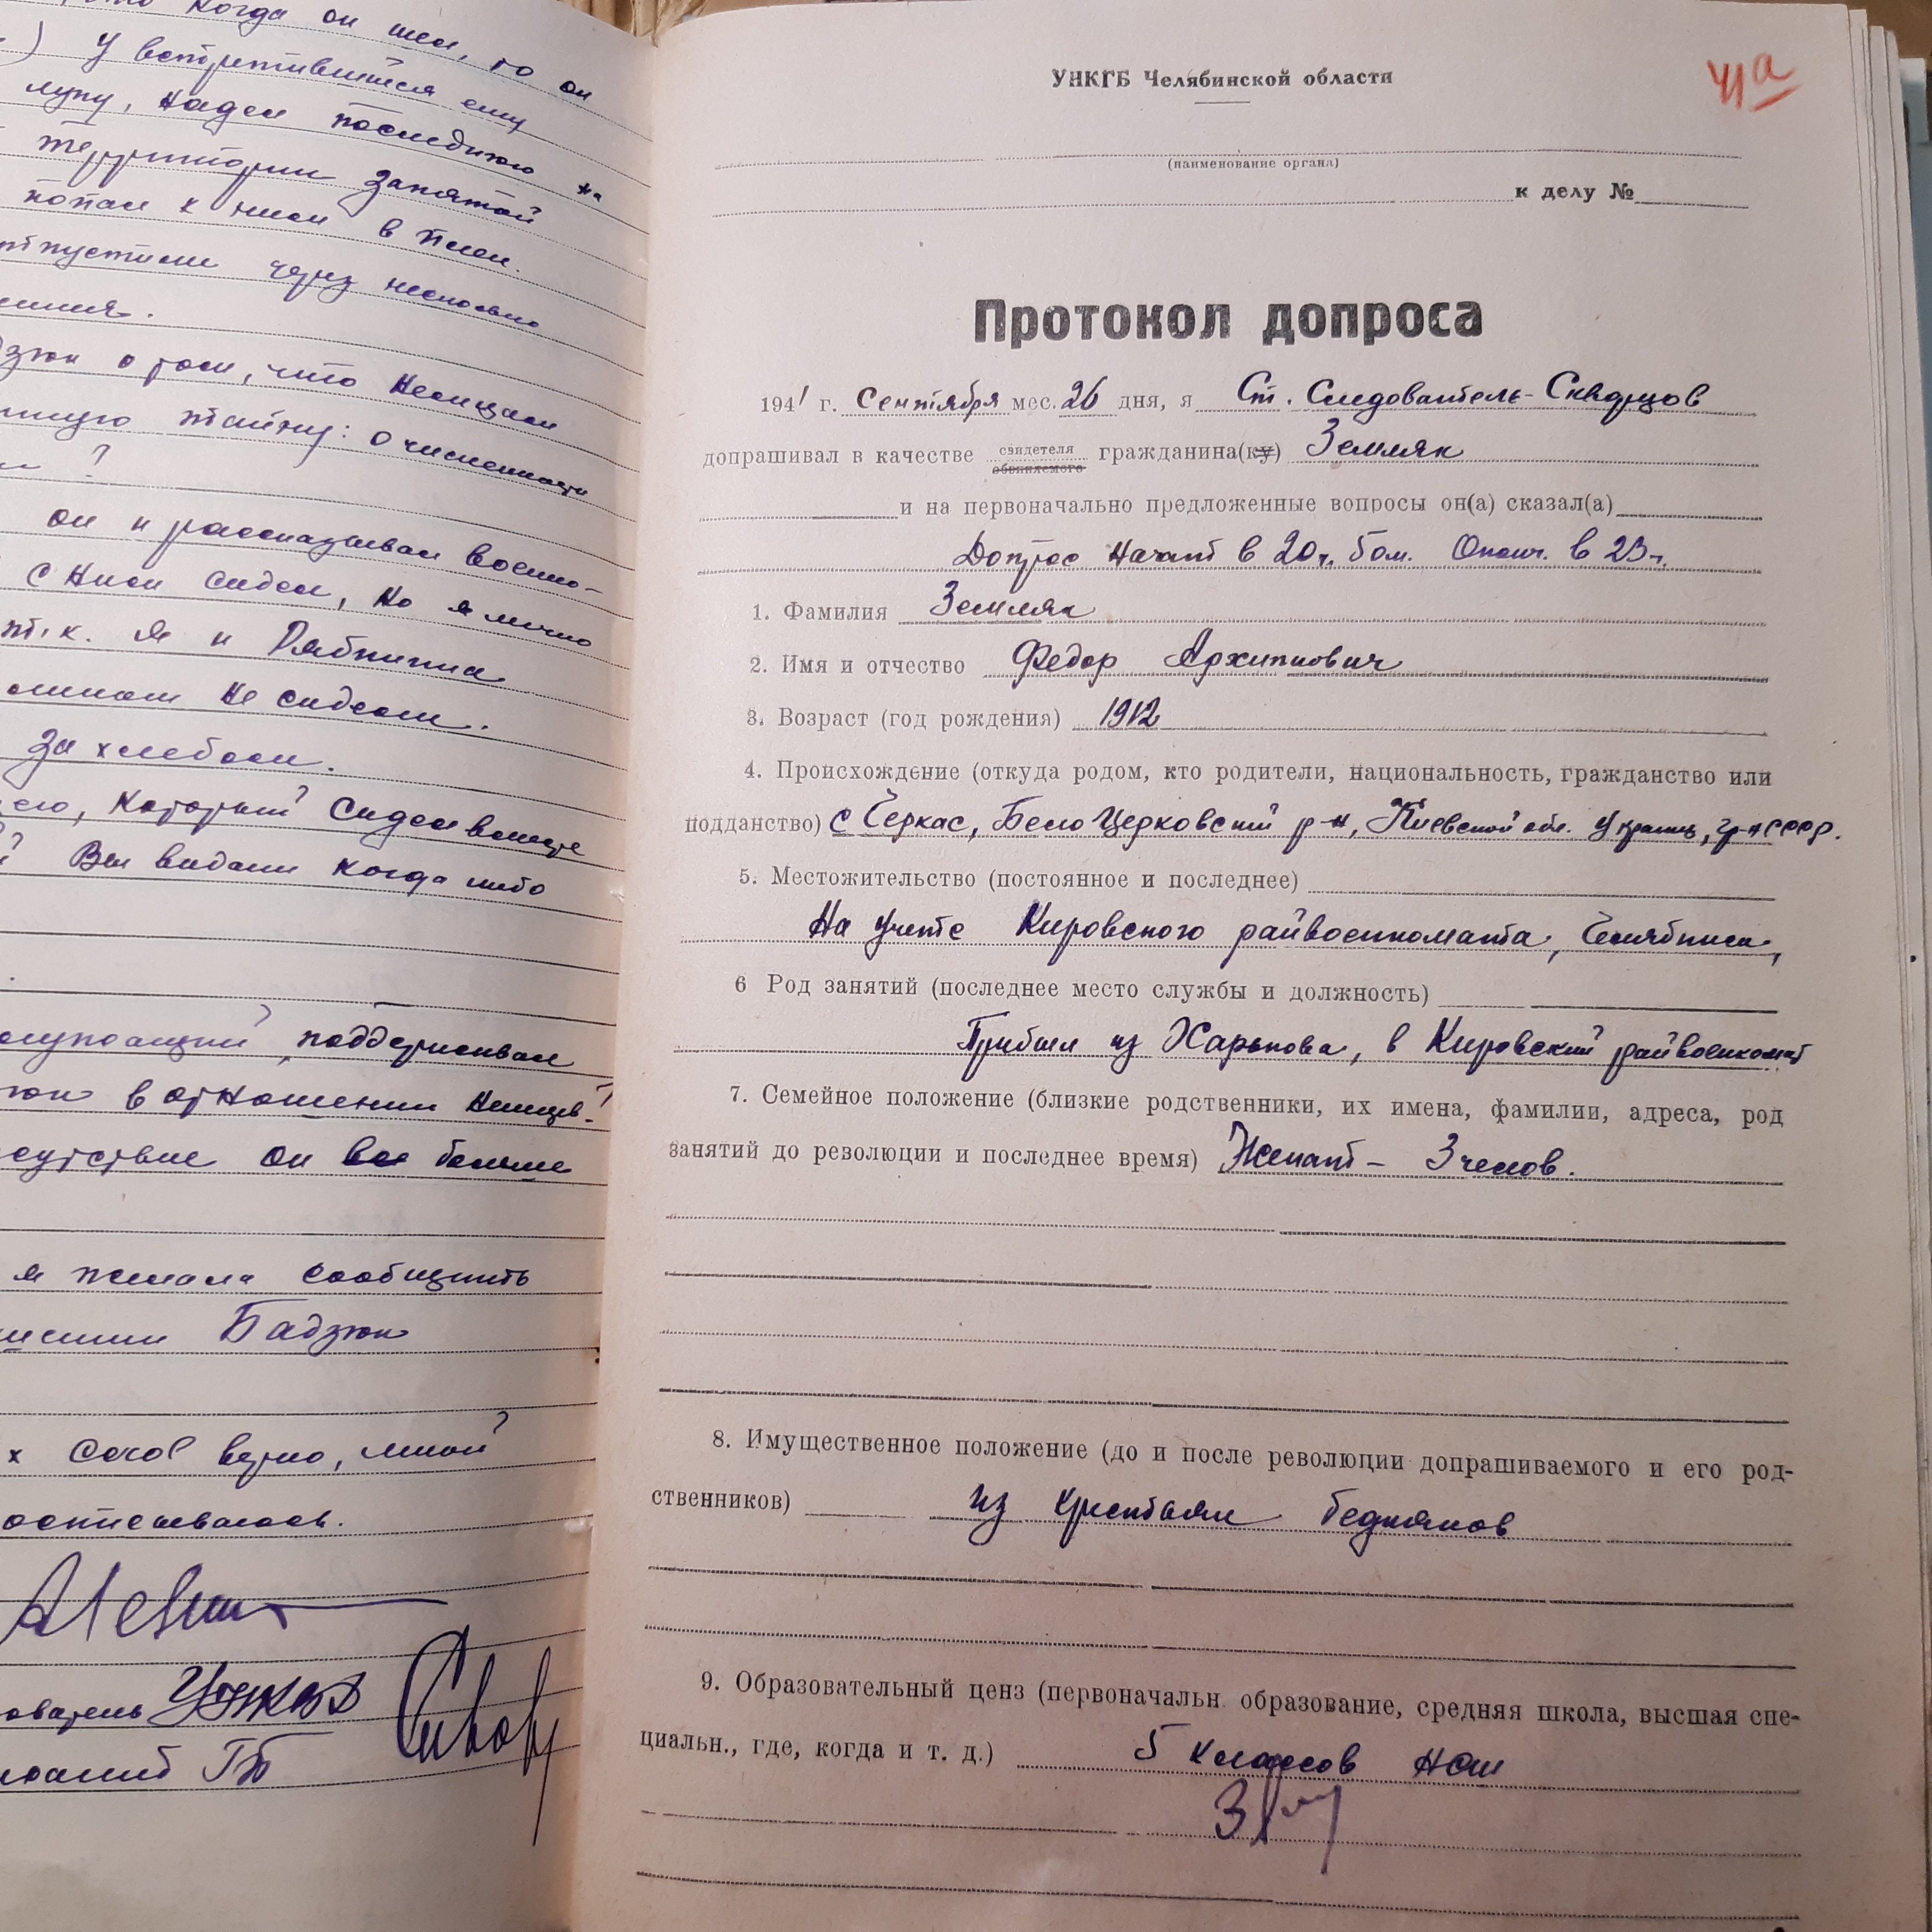 когда он шел, то он
у встретившийся ему
лупу, надел последнюю на
территории занятой
попал к ним в плен.
отпустили через несколько
о том, что немцам
тайну: о численности
?
он и рассказывал военно-
с ним сидел, но я лично
т.к. я и Рябинина
не сидели.
за хлебом.
его, который сидел вместе
? Вы видали когда либо
поддерживал
в отношении немцев?
он все больше
я желала сообщить
Бадзюк
х слов верно, мной
расписываюсь.
ГБ
УНКГБ Челябинской области
41а
(наименование органа)
к делу №
Протокол допроса
1941 г. Сентября мес. 26 дня, я Ст. Следователь- Скварцов
допрашивал в качестве свидетеля обвиняемого гражданина(ку) Земляк
и на первоначально предложенные вопросы он(а) сказал(а)
Допрос начат в 20ч. 5 0м. Оконч. в 23ч.
1. Фамилия Земляк
2. Имя и отчество Федор Архипович
3. Возраст (год рождения) 1912
4. Происхождение (откуда родом, кто родители, национальность, гражданство или
подданство) с Черкас, Бело Церковский р-н, Киевской обл. Украинец, гр-н СССР.
5. Местожительство (постоянное и последнее)
На учете Кировского райвоенкомата, Челябинск,
6 Род занятий (последнее место службы и должность)
Прибыл из Харькова, в Кировский райвоенкомат
7. Семейное положение (близкие родственники, их имена, фамилии, адреса, род
занятий до революции и последнее время) Женат – 3 челов.
8. Имущественное положение (до и после революции допрашиваемого и его род-
ственников) из крестьян бедняков
9. Образовательный ценз (первоначальн. образование, средняя школа, высшая спе-
циальн., где, когда и т. д.) 5 классов нсш